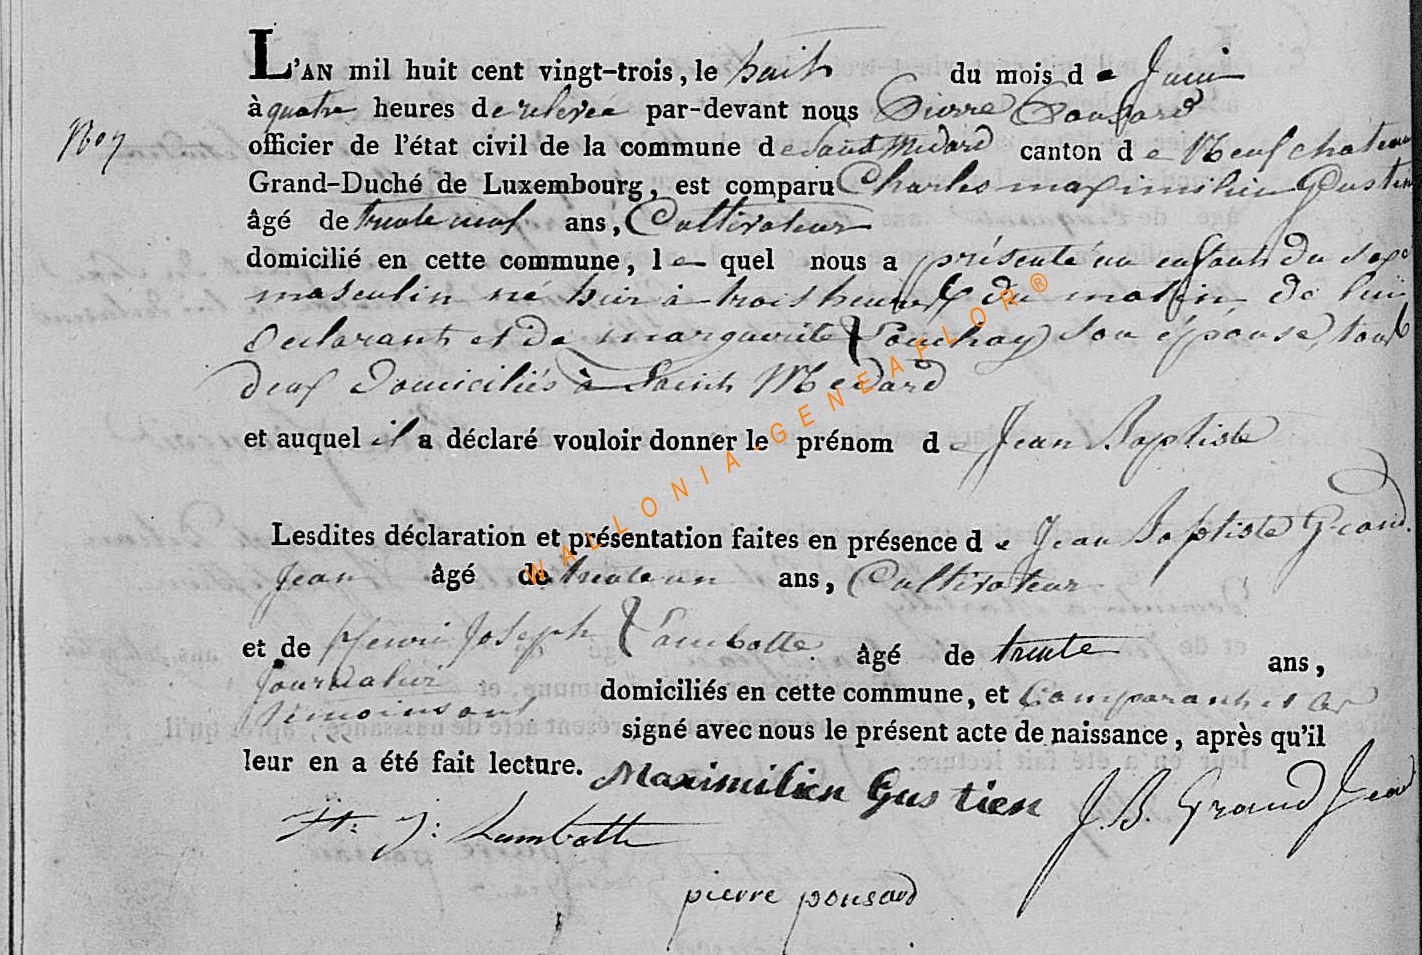 L'AN mil huit cent vingt-trois, le huit du mois de Juin
à quatre heures de relevée par-devant nous Pierre Ponsard
No 7
officier de l'état civil de la commune de Saint Medard canton de Neufchateau
Grand-Duché de Luxembourg, est comparu Charles maximilien Gustin
âgé de trente neuf ans, Cultivateur
domicilié en cette commune, lequel nous a présenté un enfant du sexe
masculin né hier à trois heures du matin de lui
declarant et de marguerite son épouse, tous
deux domiciliés à Saint Medard
et auquel il a déclaré vouloir donner le prénom de Jean Baptiste
Lesdites déclaration et présentation faites en présence de Jean Baptiste Grand
Jean âgé de trente un ans, Cultivateur
et de Henri Joseph Lambotte âgé de trente ans,
Journalier domiciliés en cette commune, et Comparant et les
témoins ont signé avec nous le présent acte de naissance, après qu'il
leur en a été fait lecture. Maximilien Gustien J. B. Grand Jean
H: J: Lambotte
pierre ponsard
WALLONIA-GENEAFLOR®